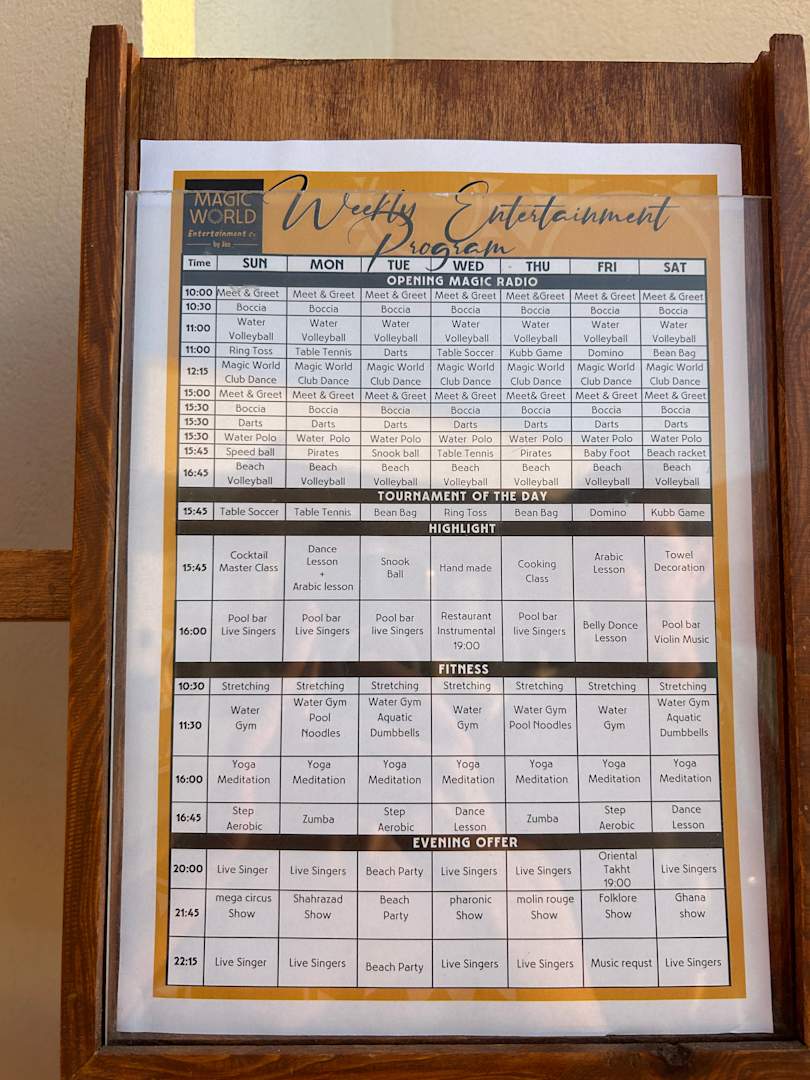 MAGIC
WORLD
Entertainment Co.
by Jez
Weekly Entertainment
Program
Time SUN MON TUE WED THU FRI SAT
OPENING MAGIC RADIO
10:00 Meet & Greet Meet & Greet Meet & Greet Meet & Greet Meet &Greet Meet & Greet Meet & Greet
10:30 Boccia Boccia Boccia Boccia Boccia Boccia Boccia
11:00 Water Volleyball Water Volleyball Water Volleyball Water Volleyball Water Volleyball Water Volleyball Water Volleyball
11:00 Ring Toss Table Tennis Darts Table Soccer Kubb Game Domino Bean Bag
12:15 Magic World Club Dance Magic World Club Dance Magic World Club Dance Magic World Club Dance Magic World Club Dance Magic World Club Dance Magic World Club Dance
15:00 Meet & Greet Meet & Greet Meet & Greet Meet & Greet Meet& Greet Meet & Greet Meet & Greet
15:30 Boccia Boccia Boccia Boccia Boccia Boccia Boccia
15:30 Darts Darts Darts Darts Darts Darts Darts
15:30 Water Polo Water Polo Water Polo Water Polo Water Polo Water Polo Water Polo
15:45 Speed ball Pirates Snook ball Table Tennis Pirates Baby Foot Beach racket
16:45 Beach Volleyball Beach Volleyball Beach Volleyball Beach Volleyball Beach Volleyball Beach Volleyball Beach Volleyball
TOURNAMENT OF THE DAY
15:45 Table Soccer Table Tennis Bean Bag Ring Toss Bean Bag Domino Kubb Game
HIGHLIGHT
15:45 Cocktail Master Class Dance Lesson + Arabic lesson Snook Ball Hand made Cooking Class Arabic Lesson Towel Decoration
16:00 Pool bar Live Singers Pool bar Live Singers Pool bar live Singers Restaurant Instrumental 19:00 Pool bar live Singers Belly Donce Lesson Pool bar Violin Music
FITNESS
10:30 Stretching Stretching Stretching Stretching Stretching Stretching Stretching
11:30 Water Gym Water Gym Pool Noodles Water Gym Aquatic Dumbbells Water Gym Water Gym Pool Noodles Water Gym Water Gym Aquatic Dumbbells
16:00 Yoga Meditation Yoga Meditation Yoga Meditation Yoga Meditation Yoga Meditation Yoga Meditation Yoga Meditation
16:45 Step Aerobic Zumba Step Aerobic Dance Lesson Zumba Step Aerobic Dance Lesson
EVENING OFFER
20:00 Live Singer Live Singers Beach Party Live Singers Live Singers Oriental Takht 19:00 Live Singers
21:45 mega circus Show Shahrazad Show Beach Party pharonic Show molin rouge Show Folklore Show Ghana show
22:15 Live Singer Live Singers Beach Party Live Singers Live Singers Music requst Live Singers